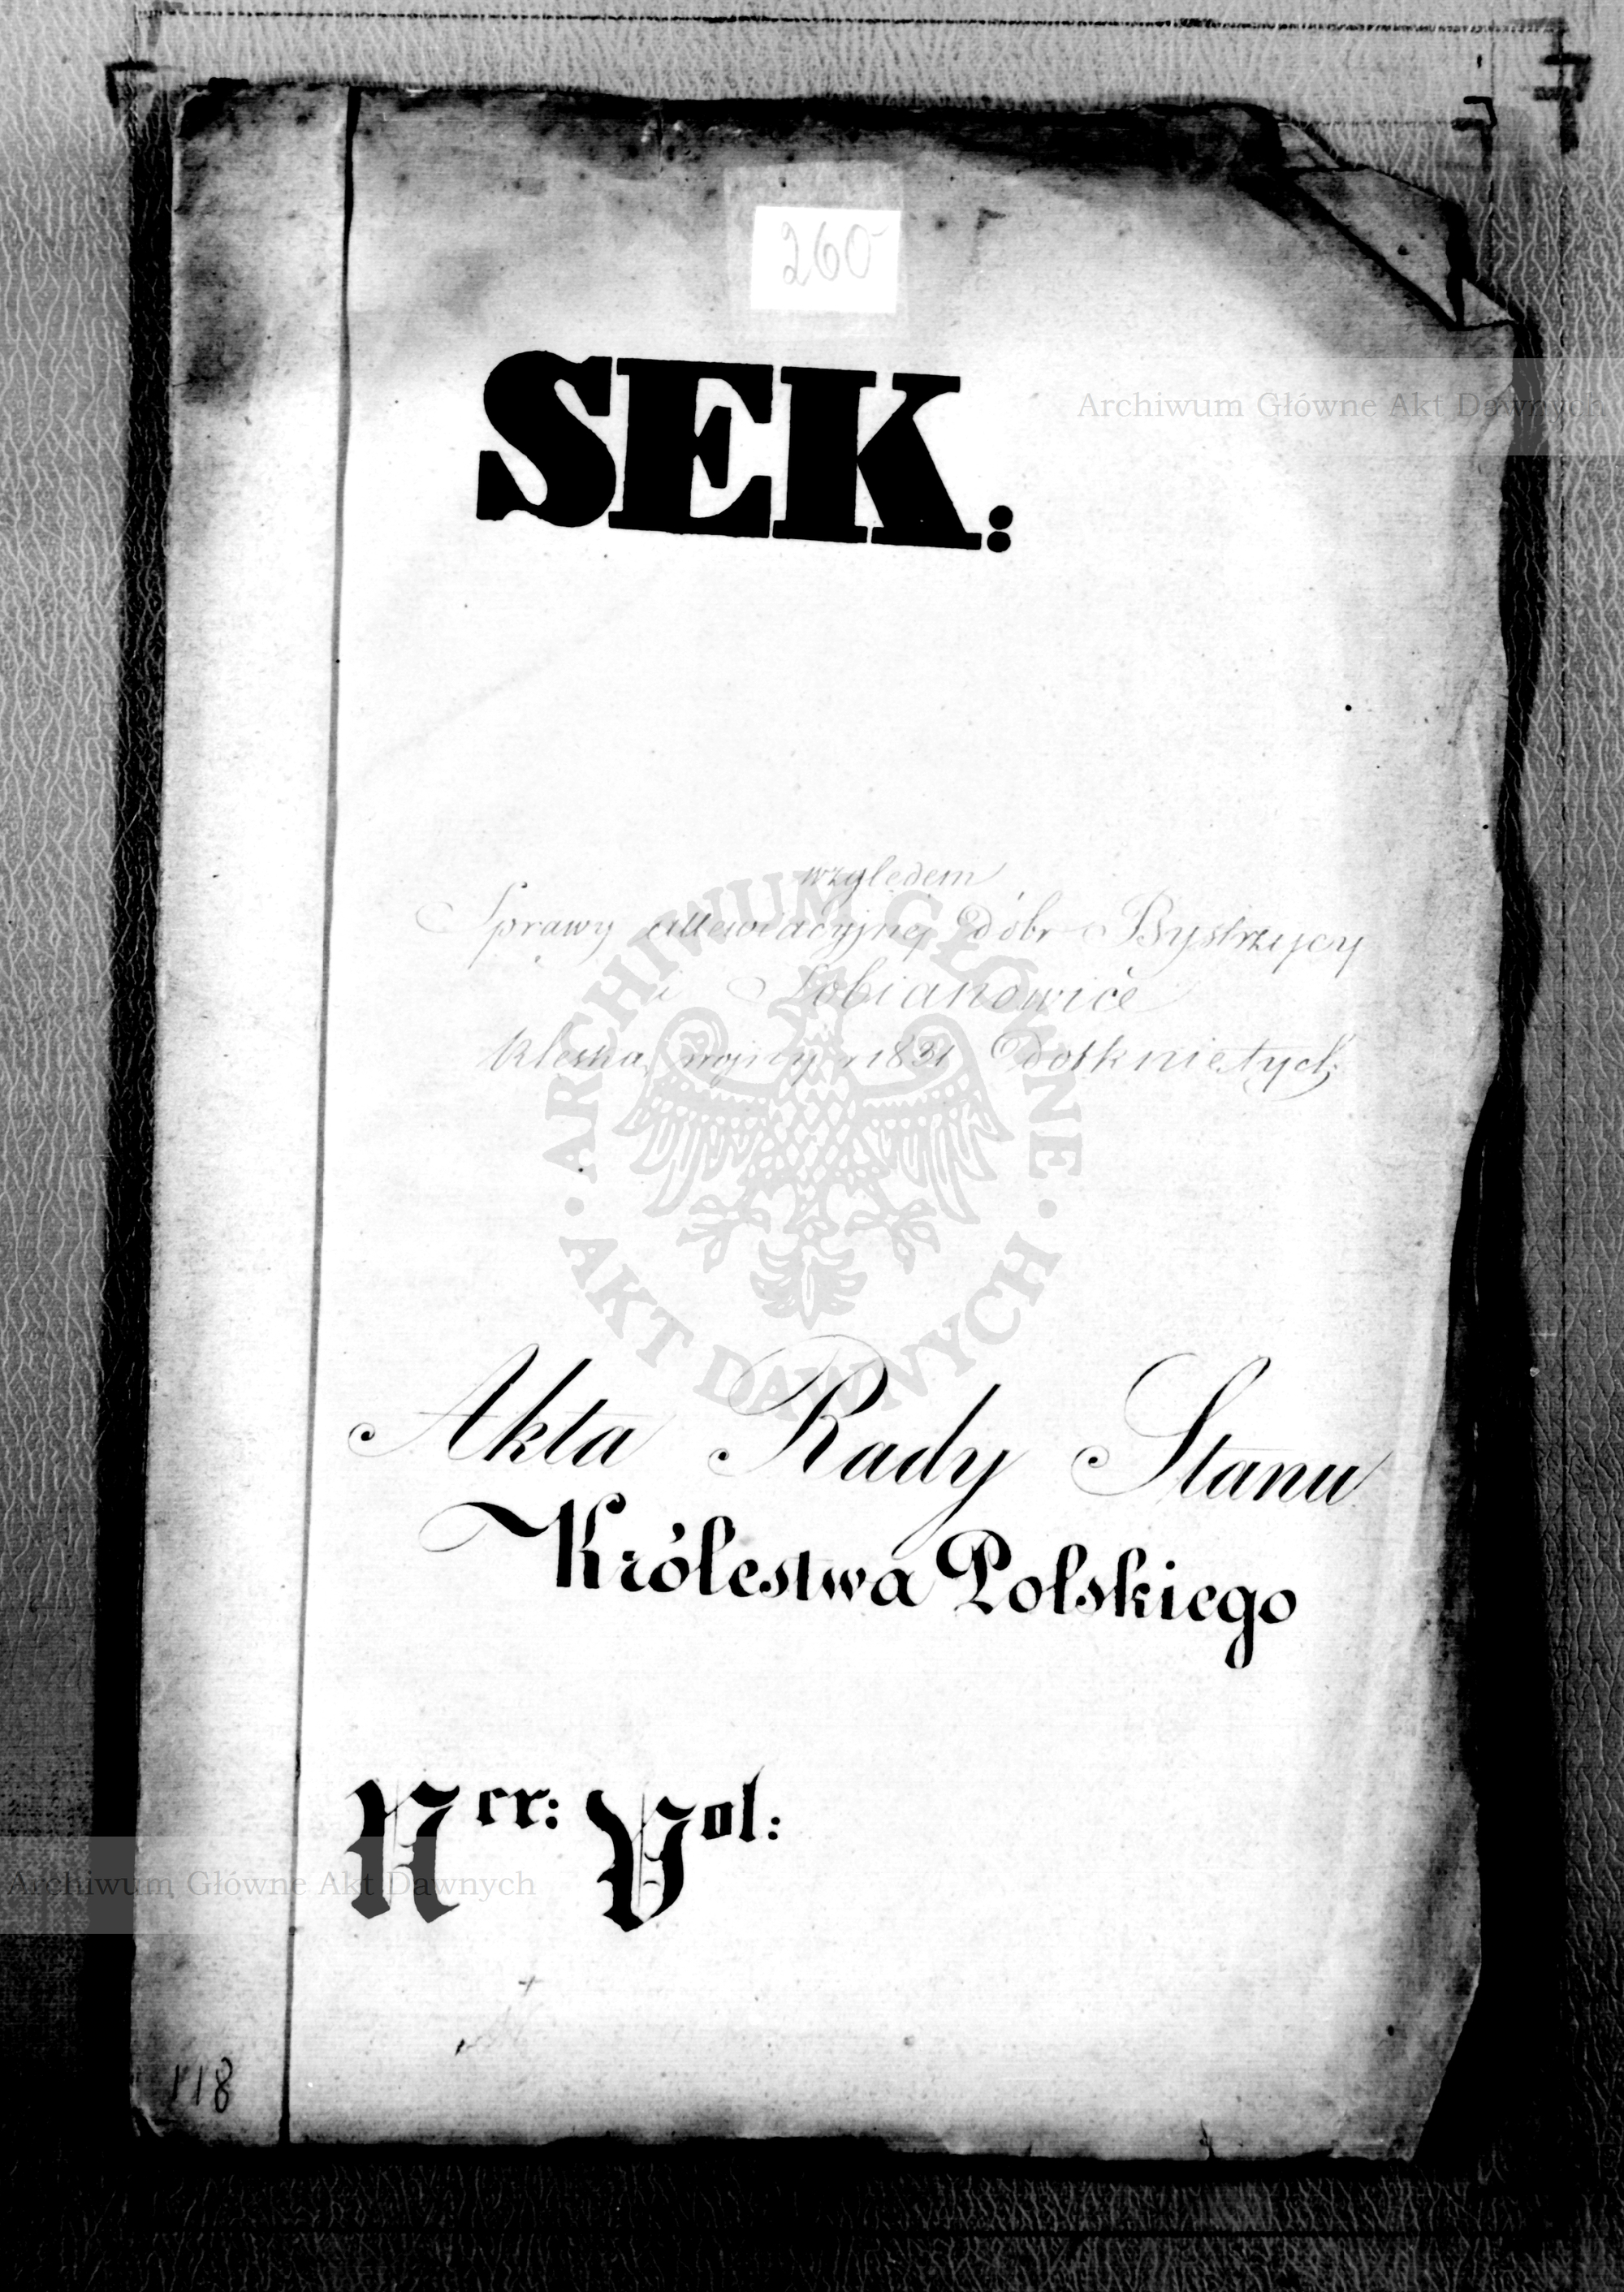 260
SEK:
Archiwum Główne Akt Dawnych
względem
Sprawy allewiacyjnej Dóbr Bystrzycy
i Sobianowice
klęską wojny r 1831 Dotkniętych
ARCHIWUM GŁÓWNE AKT DAWNYCH
Akta Rady Stanu
Królestwa Polskiego
Ner: Vol:
Archiwum Główne Akt Dawnych
118